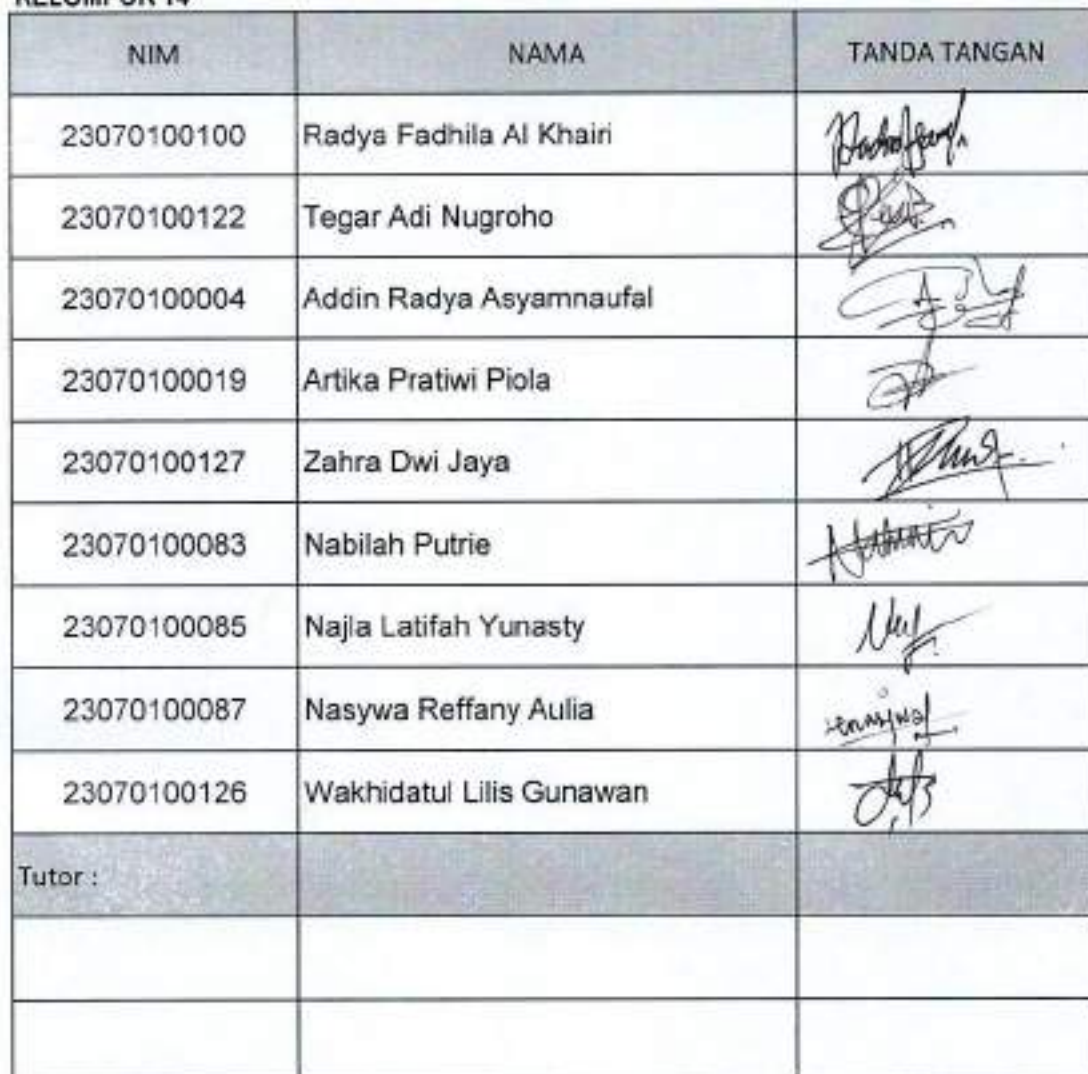 KELOMPOK 14
NIM NAMA TANDA TANGAN
23070100100 Radya Fadhila Al Khairi
23070100122 Tegar Adi Nugroho
23070100004 Addin Radya Asyamnaufal
23070100019 Artika Pratiwi Piola
23070100127 Zahra Dwi Jaya
23070100083 Nabilah Putrie
23070100085 Najla Latifah Yunasty
23070100087 Nasywa Reffany Aulia
23070100126 Wakhidatul Lilis Gunawan
Tutor :